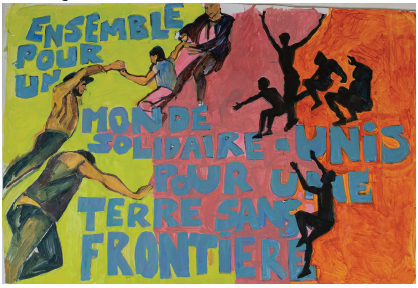 ENSEMBLE
POUR
UN
MONDE
SOLIDAIRE • UNIS
POUR UNE
TERRE SANS
FRONTIERE